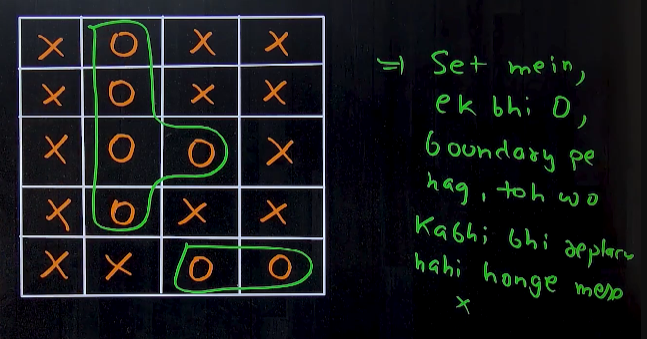 X O X X
X O X X
X O O X
X O X X
X X O O
⇒ Set mein,
ek bhi O,
boundary pe
hag, toh wo
Kabhi bhi replace
nahi honge mere
X